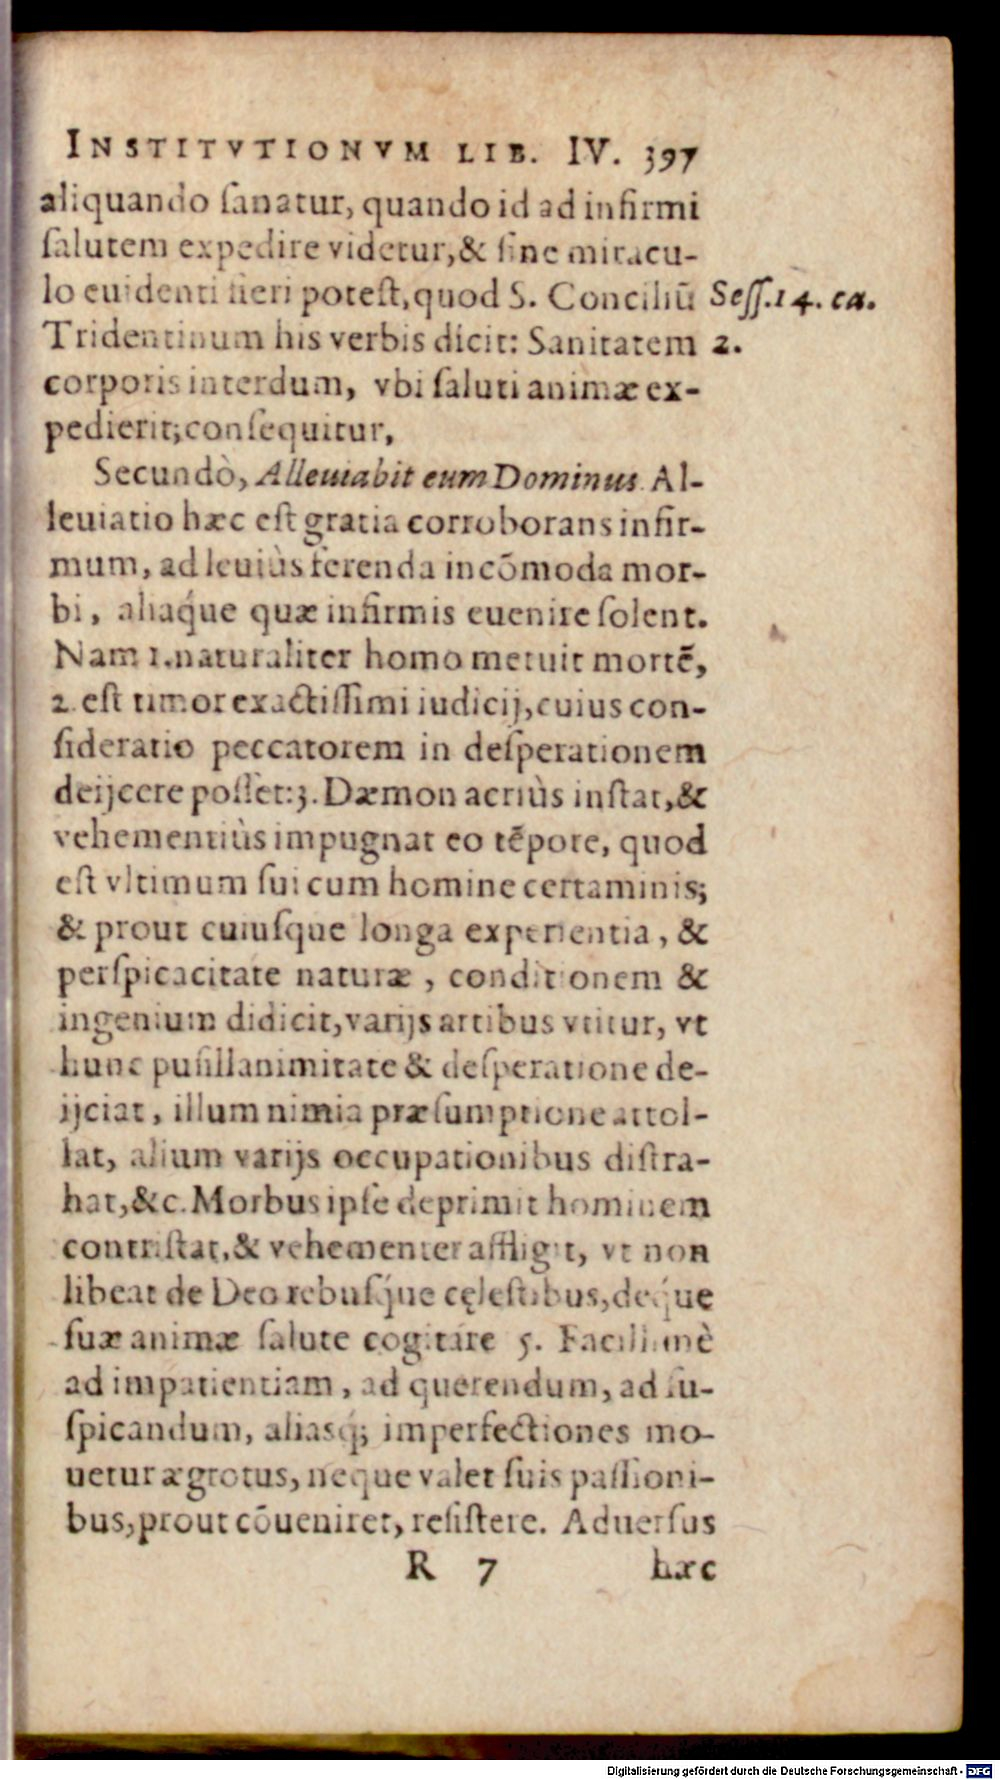 INSTITVTIONVM LIB. IV. 397
aliquando ſanatur, quando id ad infirmi
ſalutem expedire videtur, & ſine miracu-
lo euidenti fieri poteſt, quod S. Conciliū
Seſſ. 14. ca.
Tridentinum his verbis dicit: Sanitatem
2.
corporis interdum, vbi ſaluti animæ ex-
pedierit, conſequitur,
Secundò, Alleuiabit eum Dominus. Al-
leuiatio hæc eſt gratia corroborans infir-
mum, ad leuiùs ferenda incōmoda mor-
bi, aliaq́ue quæ infirmis euenire ſolent.
Nam 1. naturaliter homo metuit mortē,
2. eſt timor exactiſſimi iudicij, cuius con-
ſideratio peccatorem in deſperationem
deijcere poſſet: 3. Dæmon acriùs inſtat, &
vehementiùs impugnat eo tēpore, quod
eſt vltimum ſui cum homine certaminis;
& prout cuiuſque longa experientia, &
perſpicacitate naturæ, conditionem &
ingenium didicit, varijs artibus vtitur, vt
hunc puſillanimitate & deſperatione de-
ijciat, illum nimia præſumptione attol-
lat, alium varijs occupationibus diſtra-
hat, &c. Morbus ipſe deprimit hominem
contriſtat, & vehementer affligit, vt non
libeat de Deo rebuſq́ue cęleſtibus, deq́ue
ſuæ animæ ſalute cogitare 5. Facillimè
ad impatientiam, ad querendum, ad ſu-
ſpicandum, aliasq́; imperfectiones mo-
uetur ægrotus, neque valet ſuis paſſioni-
bus, prout cōueniret, reſiſtere. Aduerſus
R 7 hæc
Digitalisierung gefördert durch die Deutsche Forschungsgemeinschaft - DFG